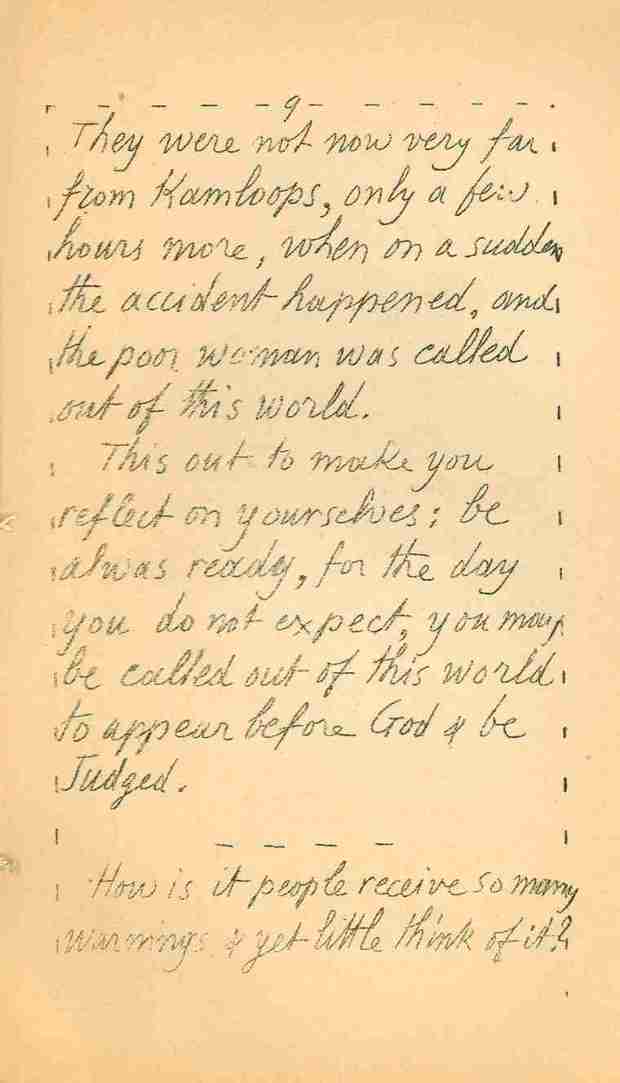 9
They were not now very far
from Kamloops, only a few
hours more, when on a sudden
the accident happened, and
the poor woman was called
out of this world.
This out to make you
reflect on yourselves; be
alwas ready, for the day
you do not expect, you may
be called out of this world
to appear before God & be
Judged.
How is it people receive so many
warnings & yet little think of it?